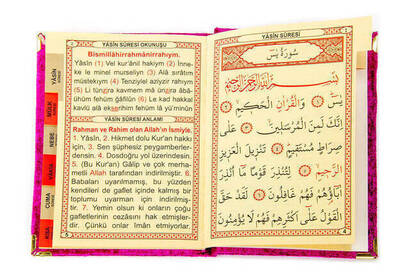 YÂSİN SÛRESİ OKUNUŞU
Bismillâhirrahmânirrahıym.
Yâsîn (1) Vel kur'ânil hakiym (2) İnne-
ke le minel murseliyn (3) Alâ sırâtım
müstekıym (4) Tenziylel aziyzir rahiym
(5) Li tünzira kavmem mâ ünzira âbâ-
ühüm fehüm ğâfilûn (6) Le kad hakkal
kavlü alâ ekserihim fehüm lâ yü'minûn
YÂSİN SÛRESİ ANLAMI
Rahman ve Rahim olan Allah'ın İsmiyle.
1. Yâsîn, 2. Hikmet dolu Kur'an hakkı
için, 3. Sen şüphesiz peygamberler-
densin. 4. Dosdoğru yol üzerindesin.
5. (Bu Kur'an) Gâlip ve çok merha-
metli Allah tarafından indirilmiştir. 6.
Babaları uyarılmamış, bu yüzden
kendileri de gaflet içinde kalmış bir
toplumu uyarman için indirilmiş-
tir. 7. Yemin olsun ki onların çoğu
gafletlerinin cezasını hak etmişler-
dir. Çünkü onlar İman etmiyorlar.
MÜLK
NEBE
VAKIA
CUMA
KISA
YÂSİN SÛRESİ
سُورَةُ يٰسٓ
بِسْمِ اللّٰهِ الرَّحْمٰنِ الرَّحِيمِ
يٰسٓ ۞ وَالْقُرْاٰنِ الْحَكِيمِ ۞
اِنَّكَ لَمِنَ الْمُرْسَلِينَ ۞ عَلٰى
صِرَاطٍ مُسْتَقِيمٍ ۞ تَنْزِيلَ الْعَزِيزِ
الرَّحِيمِ ۞ لِتُنْذِرَ قَوْمًا مَٓا اُنْذِرَ
اٰبَٓاؤُهُمْ فَهُمْ غَافِلُونَ ۞ لَقَدْ حَقَّ
الْقَوْلُ عَلٰٓى اَكْثَرِهِمْ فَهُمْ لَا يُؤْمِنُونَ